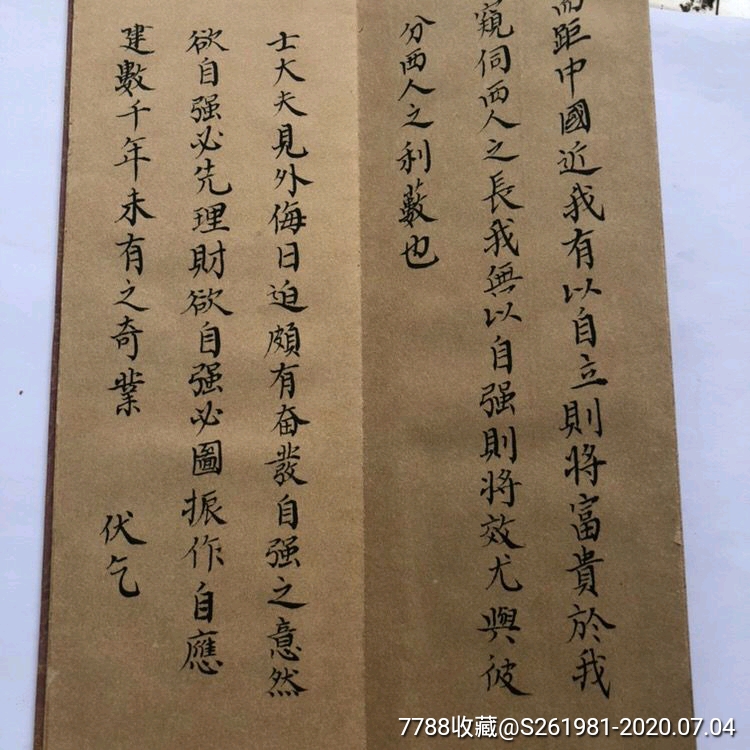 而距中國近我有以自立則將富貴於我
窺伺西人之長我無以自强則將效尤與彼
分西人之利藪也
士大夫見外侮日迫頗有奋發自强之意然
欲自强必先理財欲自强必圖振作自應
建數千年未有之奇業 伏乞
7788收藏@S261981-2020.07.04